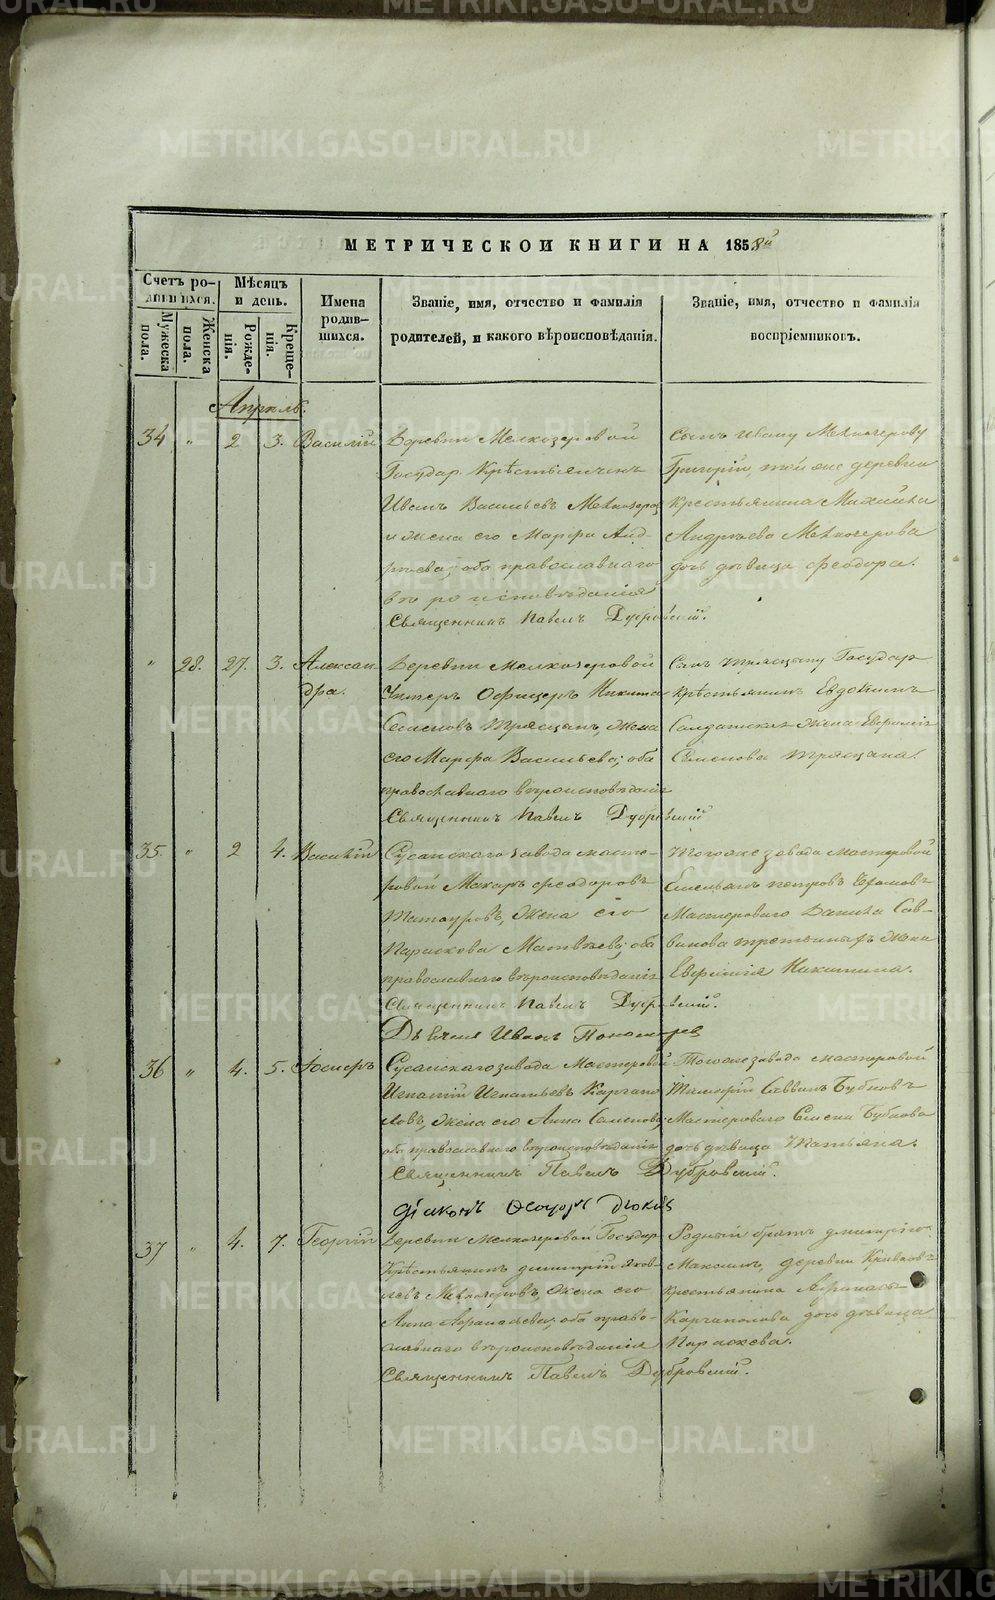 METRIKI.GASO-URAL.RU
МЕТРИЧЕСКОИ КНИГИ НА 1858й
Счетъ ро-
дившихся.
Мужеска
пола.
Женска
пола.
Мѣсяцъ
и день.
Рожде-
нія.
Креще-
нія.
Имена
родив-
шихся.
Званіе, имя, отчество и Фамилія
родителей, и какого вѣроисповѣданія.
Званіе, имя, отчество и Фамилія
воспріемниковъ.
Апрѣль.
34 " 2 3. Василій
Деревни Мелкозеровой
Государ. Крѣстьянинъ
Иванъ Васильевъ Мелкозеров
и жена его Марфа Анд-
рѣева; оба православнаго
вѣроисповѣданія
Священникъ Павелъ Дубровскій.
Сынъ Ивану Мелкозерову
Григорій, той же деревни
крестьянина Михайла
Андрѣева Мелкозерова
дочь дѣвица Феодора.
" 28. 27. 3. Алексан-
дра.
Деревни Мелкозеровой
Унтеръ Офицеръ Никита
Семеновъ Тряцынъ, жена
его Марфа Васильева; оба
православнаго вѣроисповѣданія
Священникъ Павелъ Дубровскій
Сынъ Тряцыну Государ
крѣстьянинъ Евдокимъ
Солдатская жена
Семенова Тряцына.
35. " 2 4. Василій
Сусанскаго завода масте-
ровой Макаръ Феодоровъ
Татауровъ, жена его
Параскева Матвѣева; оба
православнаго вѣроисповѣданія
Священникъ Павелъ Дубровскій.
Дьячекъ Иванъ Пономаревъ
Тогоже завода мастеровой
Емельянъ Петровъ
Мастероваго Данила Сав-
винова Третьиныхъ жена
Евфимія Никитина.
36 " 4. 5. Іосифъ
Сусанскаго завода Мастеровой
Игнатій Игнатьевъ Каргапо-
ловъ, жена его Анна Семенова;
оба православнаго вѣроисповѣданія
Священникъ Павелъ Дубровскій.
Діаконъ Феодоръ
Тогоже завода мастеровой
Тимофій Саввинъ Бубновъ
Мастероваго Семена Бубнова
дочь дѣвица Татьяна.
37 " 4. 7. Георгій
Деревни Мелкозеровой Государ
Крѣстьянинъ Димитрій Яков-
левъ Мелкозеровъ, жена его
Анна Афанасьева; оба право-
славнаго вѣроисповѣданія
Священникъ Павелъ Дубровскій.
Родный братъ Димитрію
Максимъ, деревни
крестьянина Афанасья
Каргаполова дочь дѣвица
Параскева.